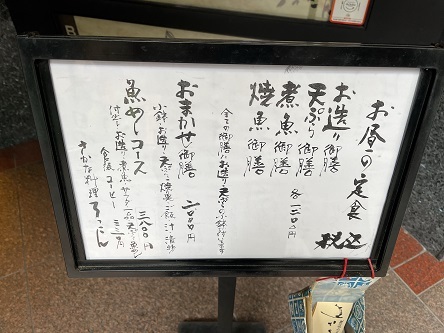 お昼の定食
税込
お造り御膳
天ぷら御膳
煮魚御膳
焼魚御膳
各一二〇〇円
全ての御膳にお造り 天ぷら 小鉢付きます
おまかせ御膳
二〇〇〇円
小鉢 お造り 天ぷら 焼魚 ご飯 汁 漬物
魚めしコース
三八〇〇円
付出 お造り 煮魚 サラダ 一品 天ぷら 魚めし
食後 コーヒー
さかな料理